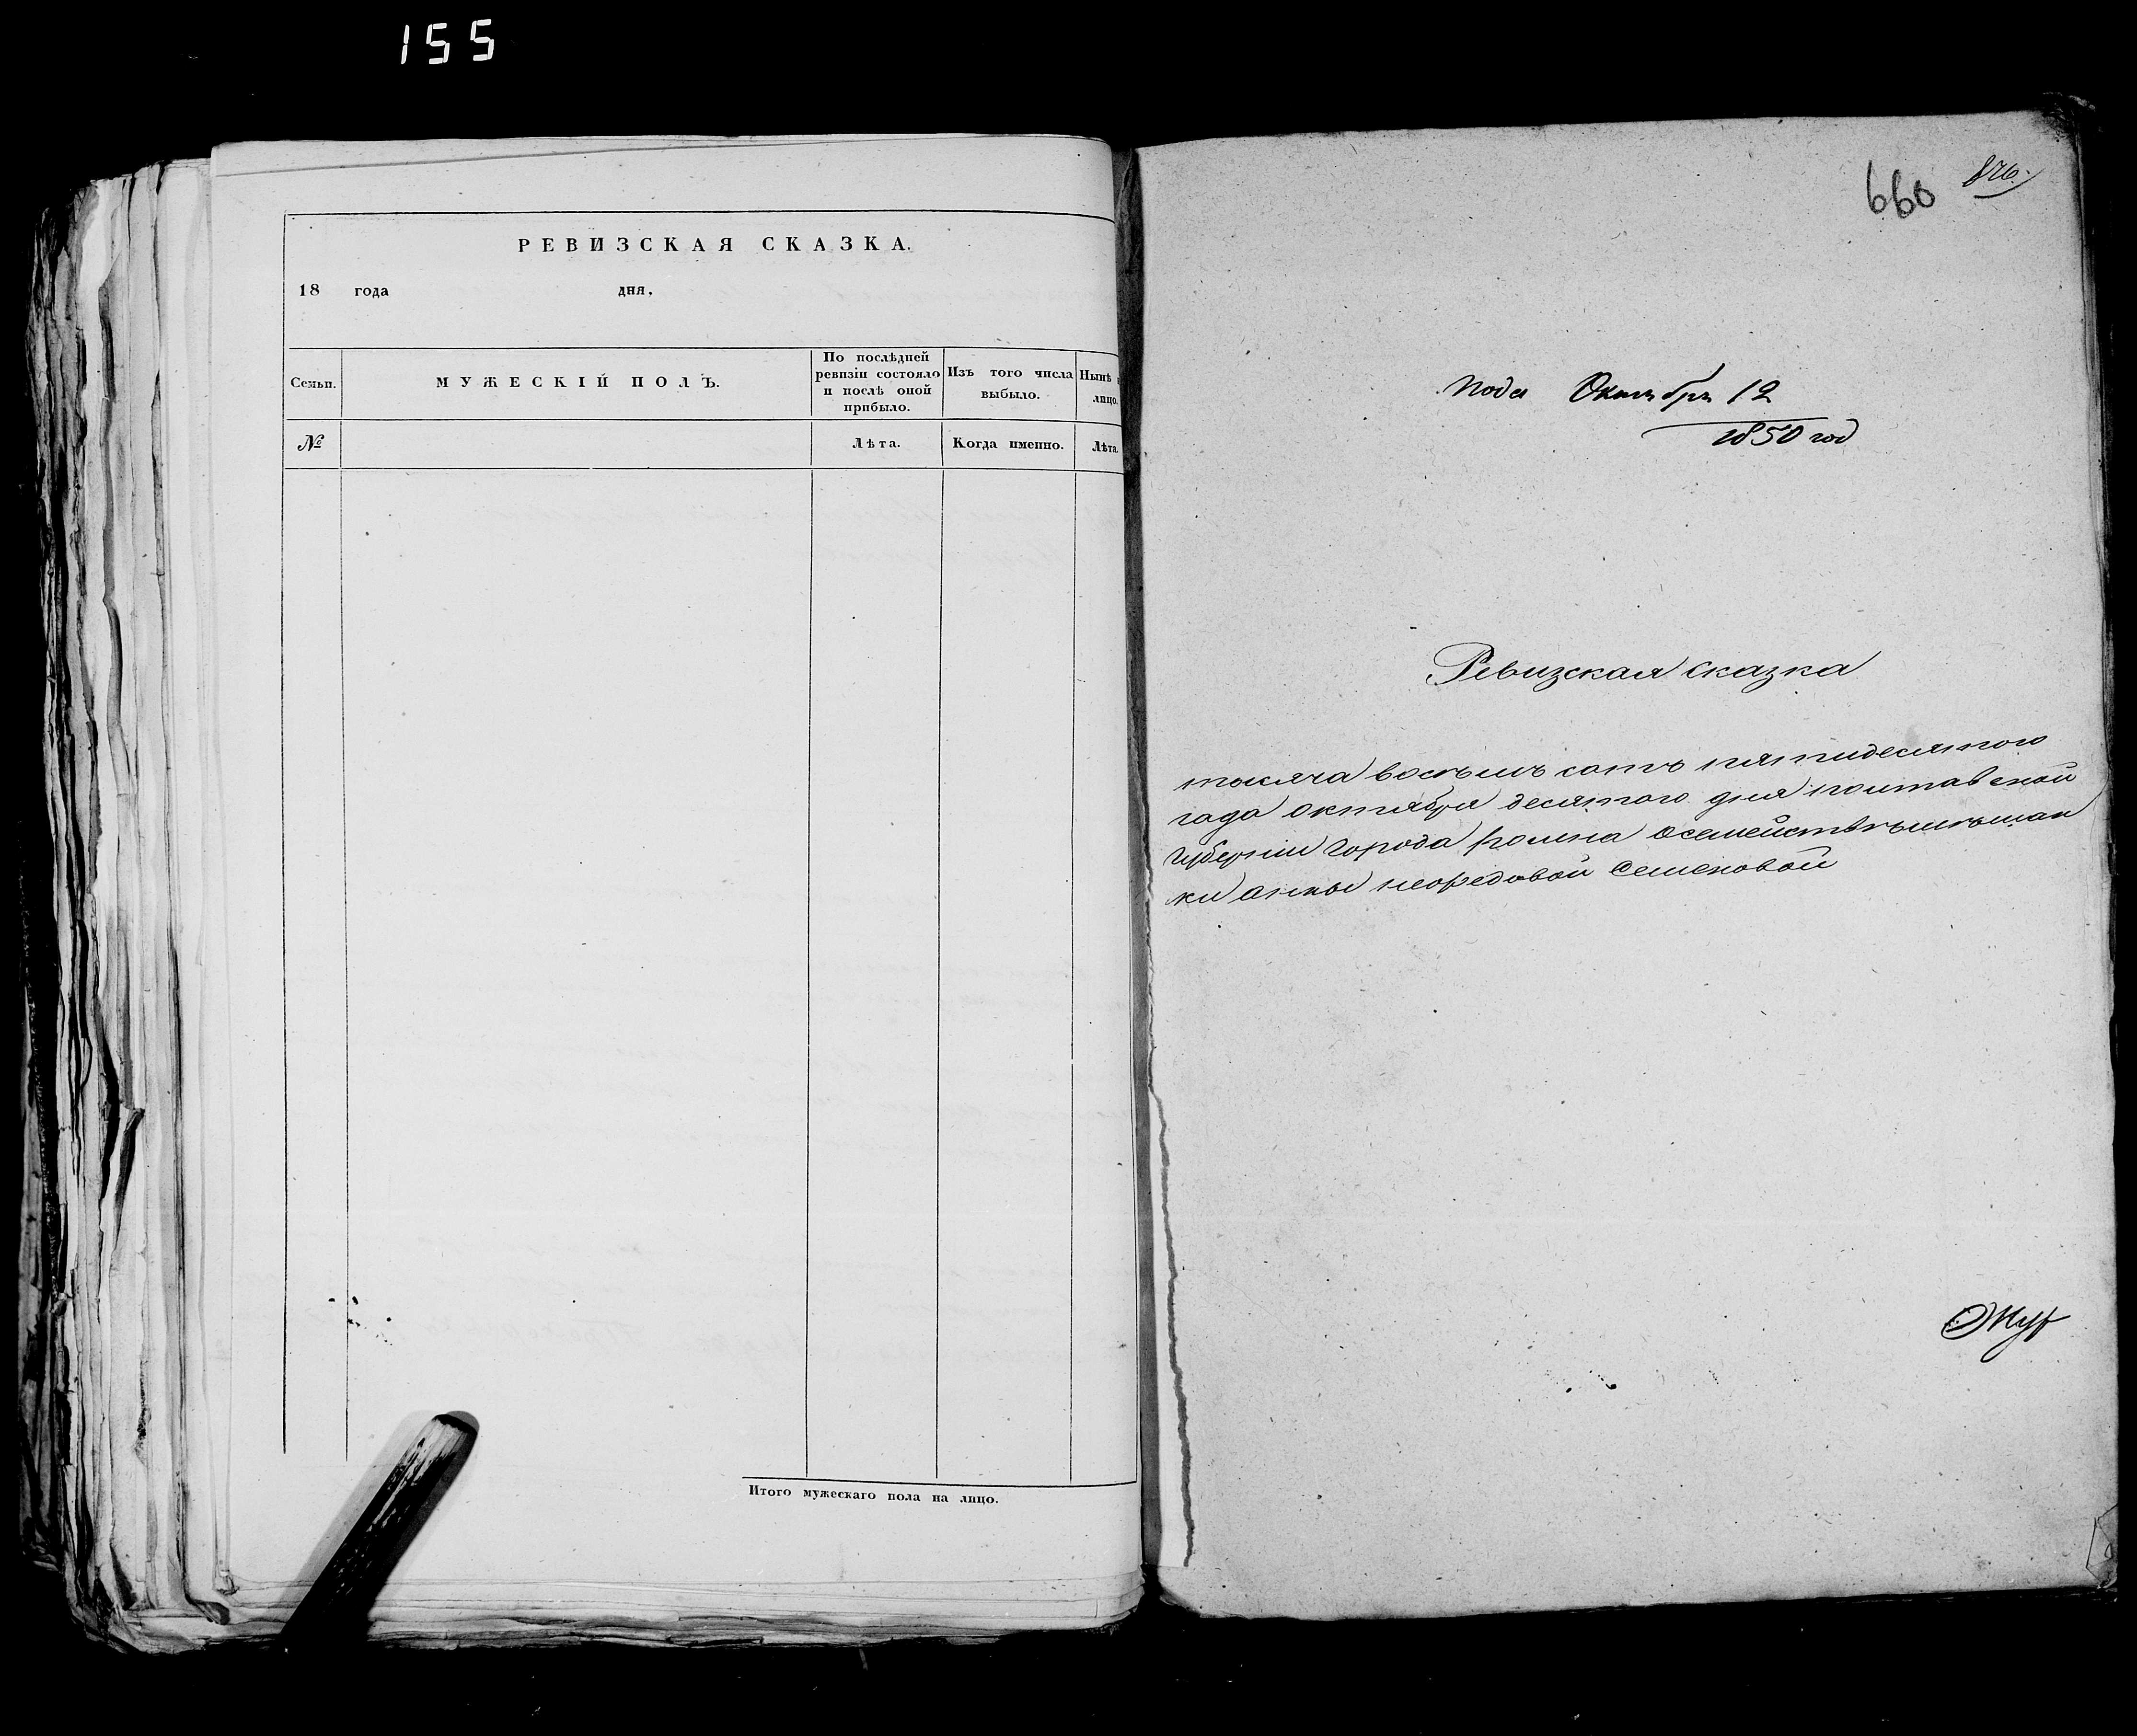 155
РЕВИЗСКАЯ СКАЗКА.
18 года дня,
Семьи.
МУЖЕСКІЙ ПОЛЪ.
По послѣдней
ревизіи состояло
и послѣ оной
прибыло.
Изъ того числа
выбыло.
Нынѣ
лицо.
№
Лѣта.
Когда именно.
Лѣта.
Итого мужескаго пола на лицо.
660
Пода Октября 12
1850 год
Ревизская сказка
тысяча восъмъ сотъ пятидесятого
года октября десятого дня полтавской
губернии города ромна осемействѣ мѣщан
ки анны Семеновой